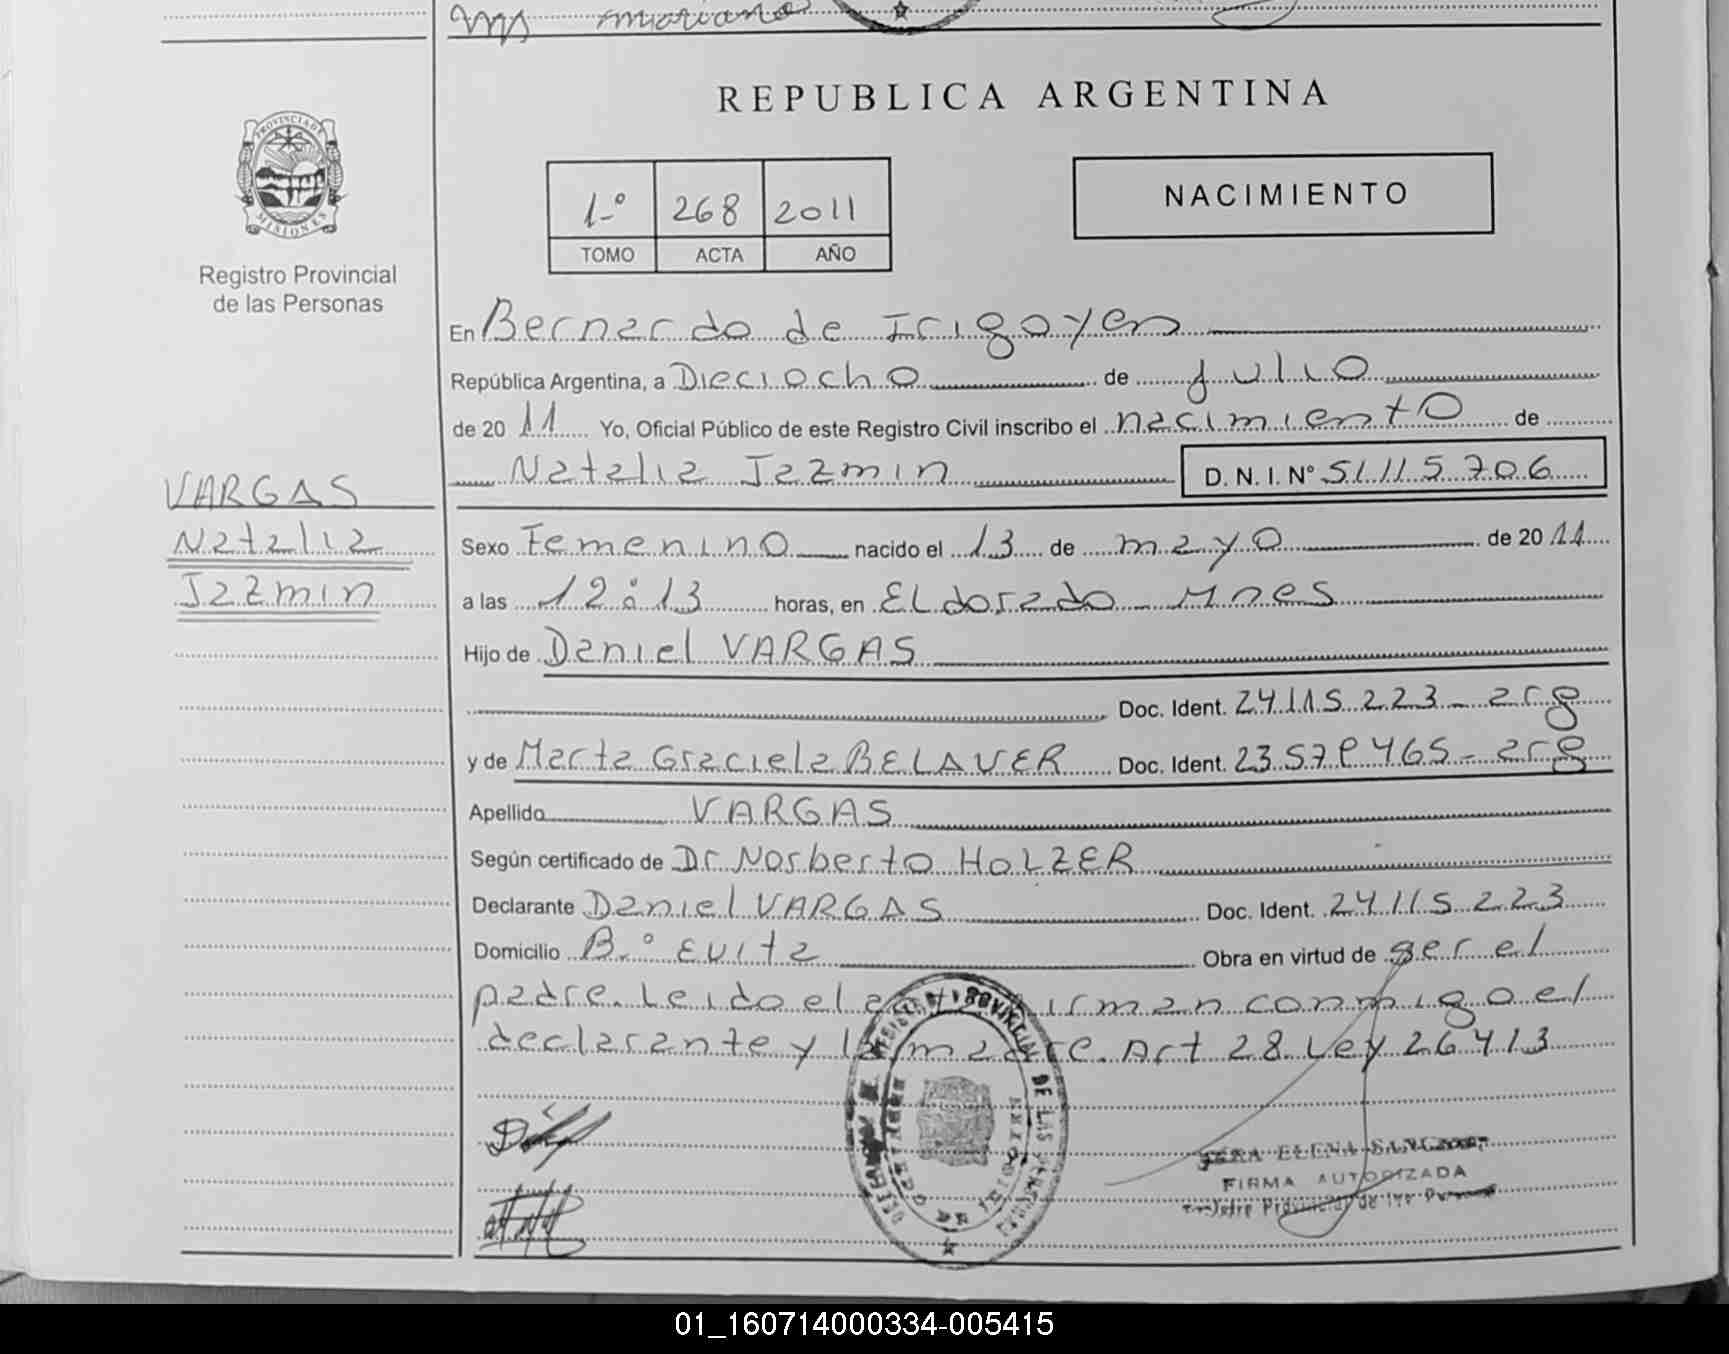 mariana
REPUBLICA ARGENTINA
PROVINCIA DE
MISIONES
Registro Provincial
de las Personas
1º 268 2011
TOMO ACTA AÑO
NACIMIENTO
En Bernardo de Irigoyen
República Argentina, a Dieciocho de julio
de 20 11 Yo, Oficial Público de este Registro Civil inscribo el nacimiento de
Natalia Jazmin D. N. I. Nº 51115706
VARGAS
Natalia
Jazmin
Sexo Femenino nacido el 13 de mayo de 20 11
a las 12:13 horas, en ELdorado Mnes
Hijo de Daniel VARGAS
Doc. Ident. 24115223 - arg
y de Marta Graciela BELAVER Doc. Ident. 23579465 - arg
Apellido VARGAS
Según certificado de Dr Norberto HOLZER
Declarante Daniel VARGAS Doc. Ident. 24115223
Domicilio B.º EVita Obra en virtud de ser el
padre. Leido el firman conmigo el
declarante y la madre. Art 28 Ley 26413
ELENA
FIRMA AUTORIZADA
Provincial de las
01_160714000334-005415